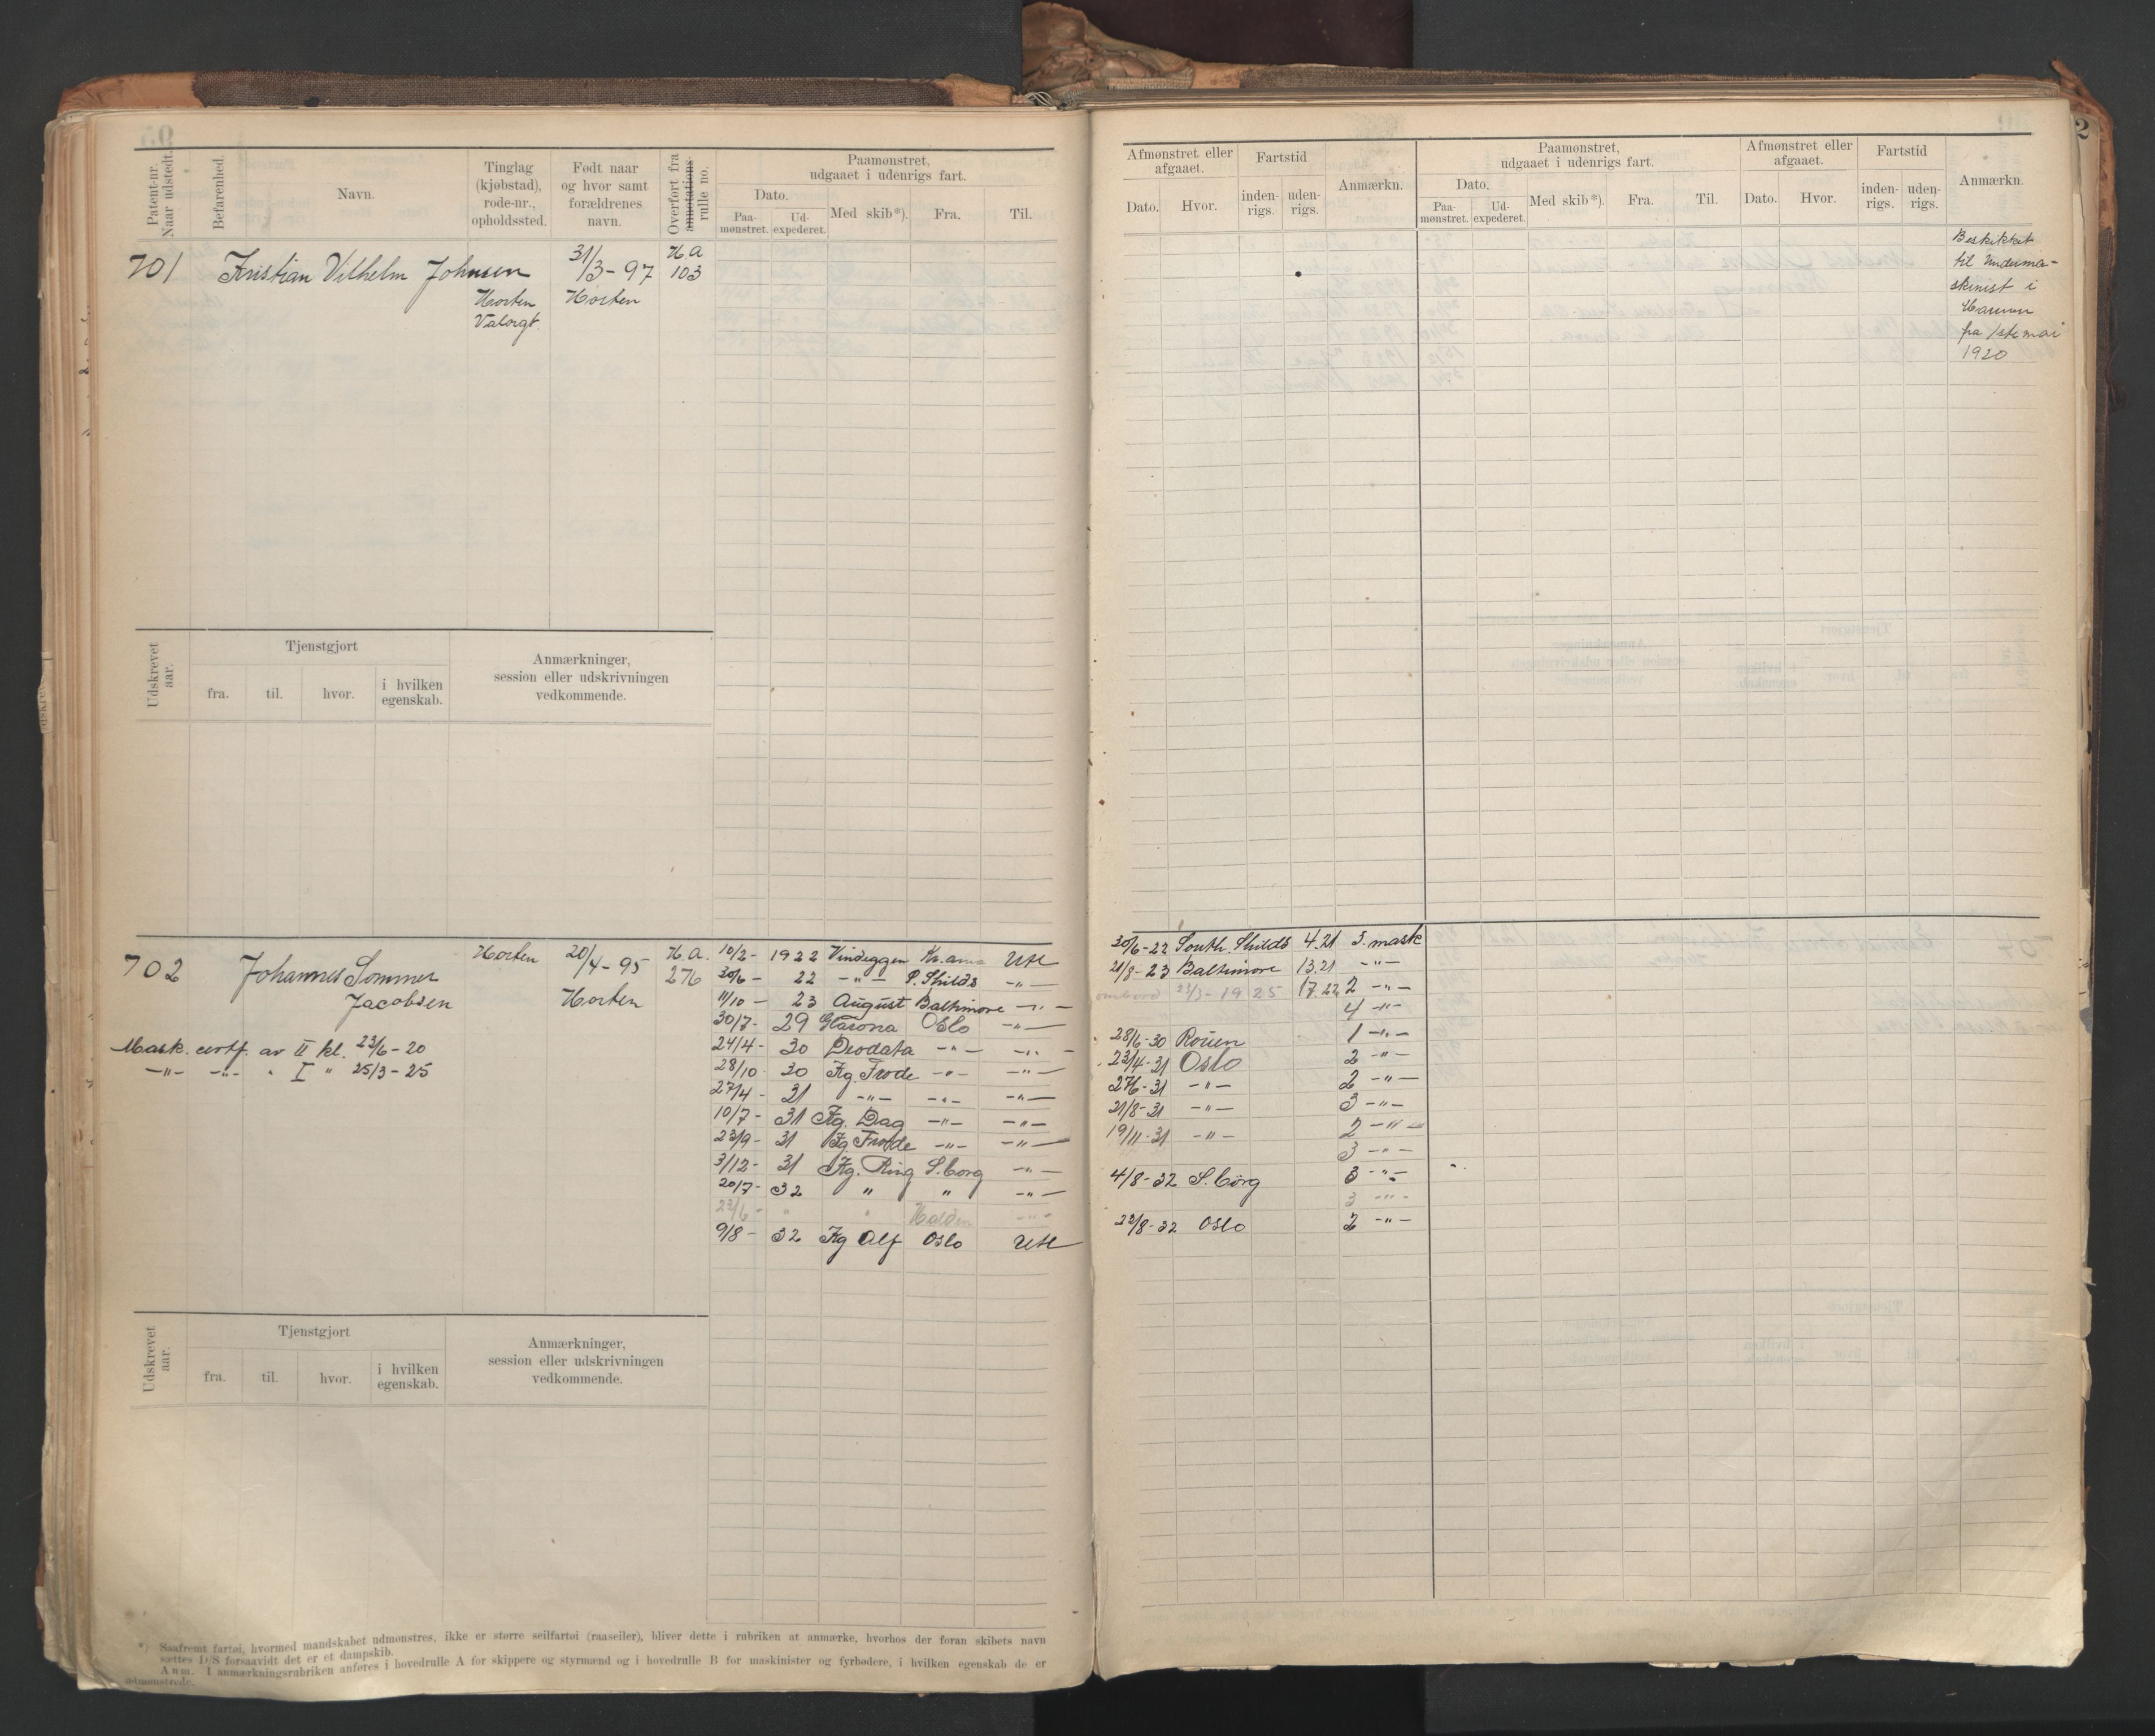 Patent-nr. Naar udstedt.
Befarenhed.
Navn.
Tinglag (kjøbstad), rode-nr., opholdssted.
Født naar og hvor samt forældrenes navn.
Overført fra annotations rulle no.
Paamønstret, udgaaet i udenrigs fart.
Dato.
Paa-mønstret.
Ud-expederet.
Med skib*).
Fra.
Til.
701 Kristian Vilhelm Johnsen 31/3-97 H.A 103
Horten Horten
Valorgt.
Udskrevet aar.
Tjenstgjort
fra. til. hvor. i hvilken egenskab.
Anmærkninger, session eller udskrivningen vedkommende.
702 Johannes Sommer Horten 20/4-95 H.A. 276
Jacobsen Horten
Mask. certf. av II kl. 23/6-20
-"- -"- " I " 25/3-25
10/2- 1922 Vindeggen Kr.ania Utl
30/6- 22 -"- S. Shilds -"-
11/10- 23 August Baltimore -"-
30/7- 29 Oslo -"-
24/4- 30 Deodata -"- -"-
28/10 30 Kg. Frode -"- -"-
27/4- 31 -"- -"- -"-
10/7- 31 Kg. Dag -"- -"-
23/9- 31 Kg Frode -"- -"-
3/12- 31 Kg. Ring S.borg -"-
20/7- 32 " " -"-
23/6- " " Halden -"-
9/8- 32 Kg Alf Oslo Utl
Udskrevet aar.
Tjenstgjort
fra. til. hvor. i hvilken egenskab.
Anmærkninger, session eller udskrivningen vedkommende.
*) Saafremt fartøi, hvormed mandskabet udmønstres, ikke er større seilfartøi (raaseiler), bliver dette i rubriken at anmærke, hvorhos der foran skibets navn
sættes D/S forsaavidt det er et dampskib.
Anm. I anmærkningsrubriken anføres i hovedrulle A for skippere og styrmænd og i hovedrulle B for maskinister og fyrbødere, i hvilken egenskab de er
udmønstrede.
Afmønstret eller afgaaet.
Dato. Hvor.
Fartstid
inden-rigs. uden-rigs.
Anmærkn.
Paamønstret, udgaaet i udenrigs fart.
Dato.
Paa-mønstret. Ud-expederet.
Med skib*). Fra. Til.
Afmønstret eller afgaaet.
Dato. Hvor.
Fartstid
inden-rigs. uden-rigs.
Anmærkn.
2
Beskikket
til Underma-
skinist i
Marinen
fra 1ste mai
1920
30/6-22 South. Shilds 4.21 3. mask
21/8-23 Baltimore 13.21 -"-
ombord 23/3-1925 17.22 2 -"-
4 -"-
28/6-30 Rouen 1 -"-
23/4-31 Oslo 2 -"-
27/6-31 -"- 2 -"-
21/8-31 -"- 3 -"-
19/11-31 -"- 2 -"-
3 -"-
4/8-32 S.borg 3 -"-
3 -"-
22/8-32 Oslo 2 -"-